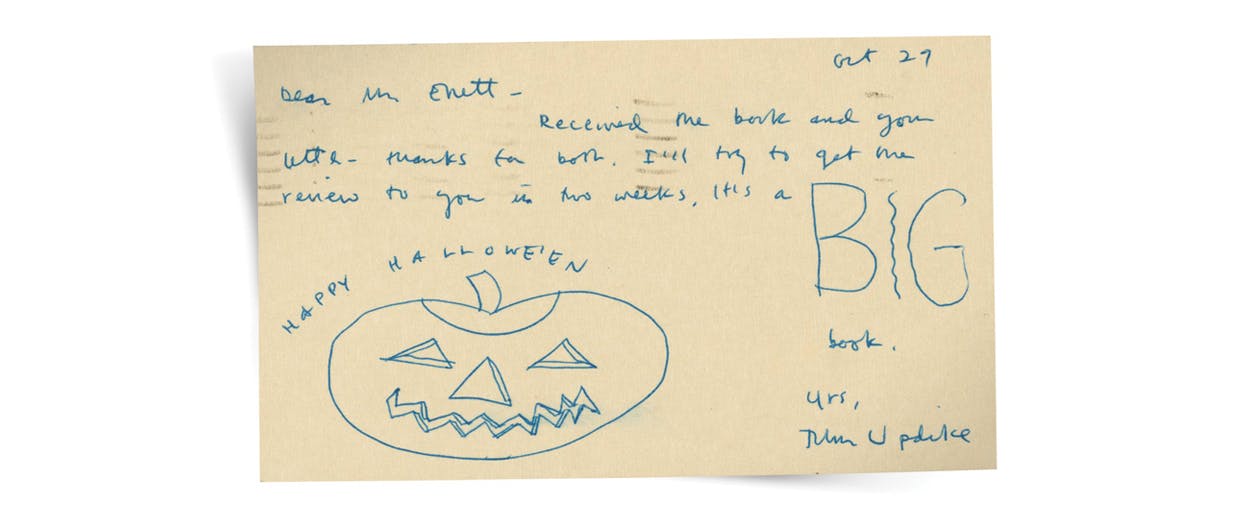 Oct 29
Dear Mr Emett –
Received the book and your
letter – thanks for both. I'll try to get the
review to you in two weeks. It's a BIG
HAPPY HALLOWE'EN
book.
Yrs,
John Updike